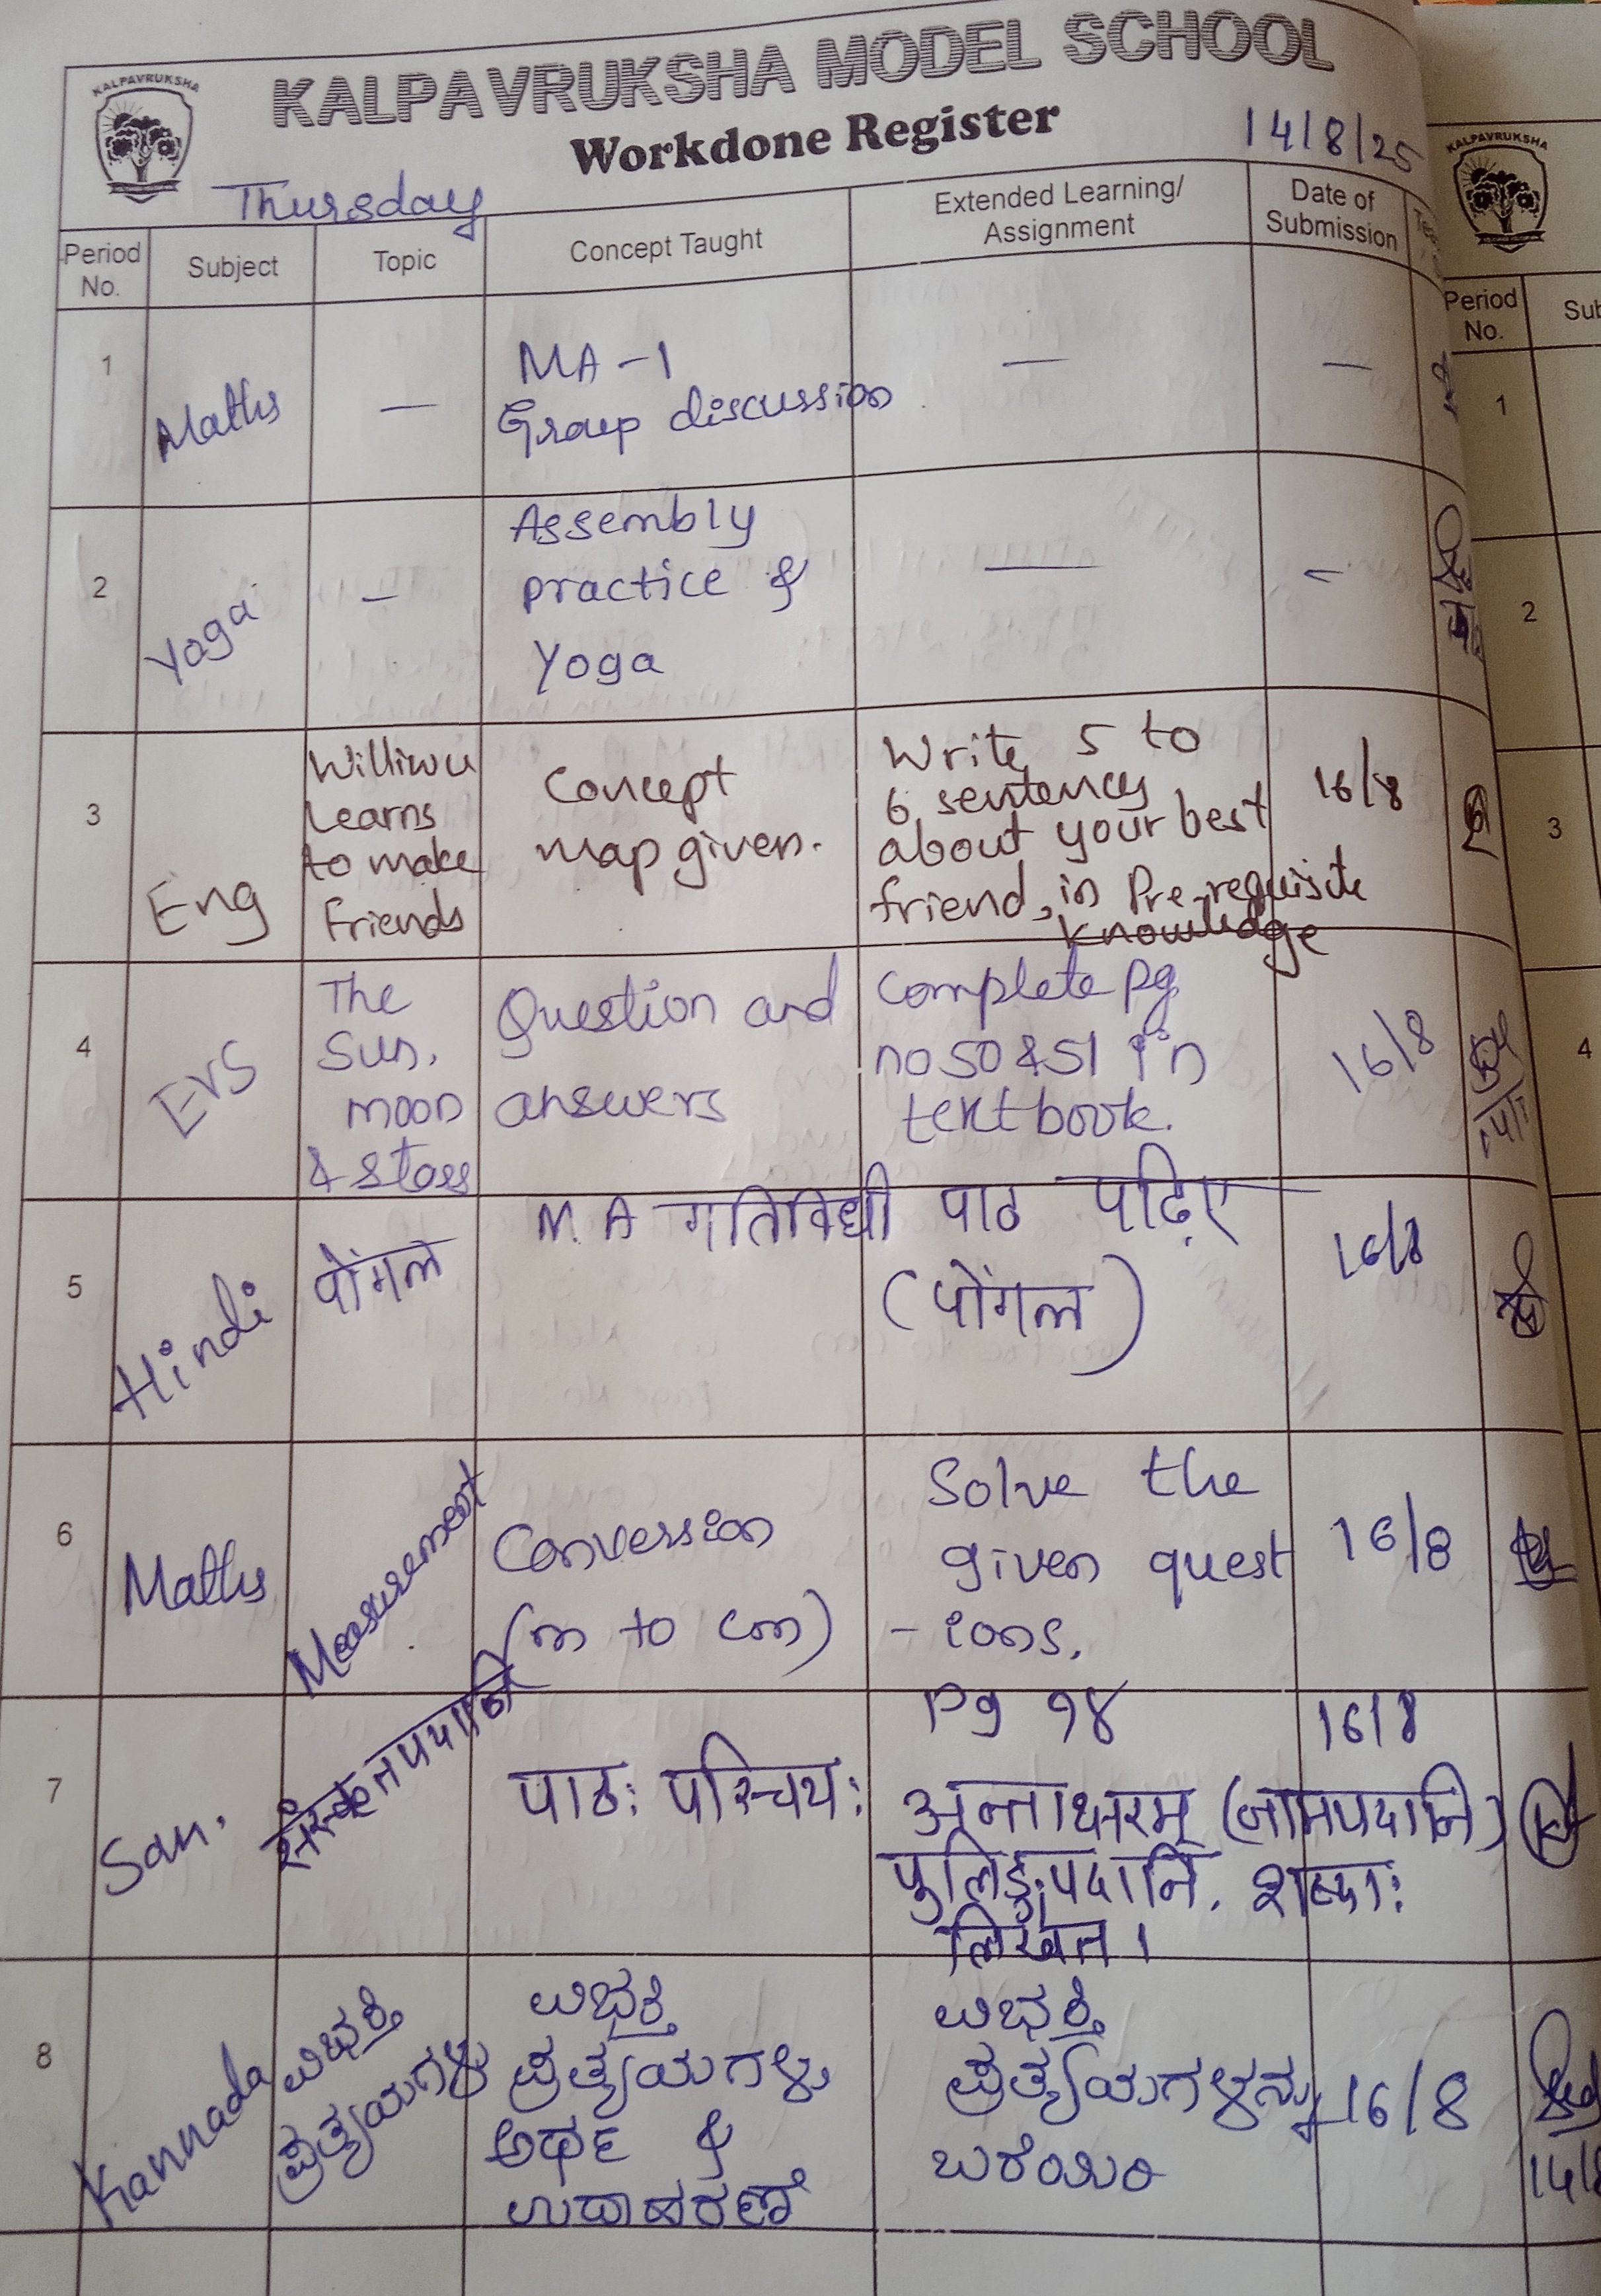 KALPAVRUKSHA MODEL SCHOOL
KALPAVRUKSHA
Workdone Register
14/8/25
Thursday
Period No.
Subject
Topic
Concept Taught
Extended Learning/
Assignment
Date of
Submission
1
Maths
—
MA-1
Group discussion
—
—
2
Yoga
—
Assembly
practice &
Yoga
—
—
3
Eng
Williwu
Learns
to make
Friends
Concept
map given.
Write 5 to
6 sentences
about your best
friend, in Pre-requisite
knowledge
16/8
4
EVS
The
Sun,
moon
& stars
Question and
answers
Complete pg
no 50 & 51 in
textbook.
16/8
5
Hindi
पोंगल
M.A गतिविधी पाठ पढ़िए
(पोंगल)
16/8
6
Maths
Measurement
Conversion
(m to cm)
Solve the
given quest
- ions.
16/8
7
San.
संस्कृतपदानि
पाठः परिचयः
Pg १४
16/8
अन्ताक्षरम् (नामपदानि)
पुलिङ्गःपदानि. शब्दाः
लिखत।
8
Kannada
ವಿಭಕ್ತಿ
ಪ್ರತ್ಯಯಗಳು
ವಿಭಕ್ತಿ
ಪ್ರತ್ಯಯಗಳು
ಅರ್ಥ &
ಉದಾಹರಣೆ
ವಿಭಕ್ತಿ
ಪ್ರತ್ಯಯಗಳನ್ನು
ಬರೆಯಿರಿ
16/8
KALPAVRUKSHA
Period
No.
Sub
1
2
3
4